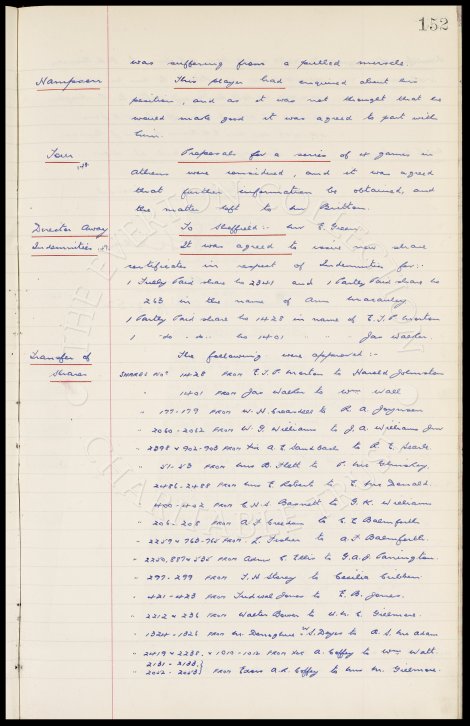 152
was suffering from a pulled muscle.
Hampson This player had enquired about his
position, and as it was not thought that he
would make good it was agreed to part with
him.
Tour Proposals for a series of 4 games in
Athens were considered, and it was agreed
that further information be obtained, and
the matter left to Mr Britton.
Director Away To Sheffield:- Mr E. Green
Indemnities It was agreed to issue new share
certificates in respect of Indemnities for:-
1 Fully Paid share No 2341 and 1 Partly Paid share No
263 in the name of Ann Macauley
1 Partly Paid share No 1428 in name of E.J.P. Morton
1 -do- -do- No 1401 Jas Walter
Transfer of The following were approved:-
Shares SHARES Nos 1428 FROM E.J.P. Morton to Harold Johnston
" 1401 FROM Jas Walter to Wm Wall
" 177-179 FROM W.H. to R A
" 2060-2062 FROM W.G. Williams to J.A. Williams Jnr
" 2398 & 902-903 FROM A.E. Sandbach to R.E. Searle
" 51-53 FROM Mrs B. Flett to P. Mc
" 2486-2488 FROM Mrs E Roberts to E. Mc Donald
" 400-402 FROM C.N.S. Barnett to G.K. Williams
" 206-208 FROM A.F. Creedon to C.E Balmforth
" 2259 & 763-765 FROM L. Fisher to A.F Balmforth.
" 2250, 887 & 535 FROM C. Ellis to G.A.J. Carrington.
" 297-299 FROM T.H Storey to Cecilia Cribbin.
" 421-423 FROM Tudwal Jones to E.B. Jones.
" 2212 & 236 FROM Walter Bower to W.M.C. Gilmore.
" 1324-1326 FROM Mr Donoghue & W.S. Dayes to A.S. Mc Adam
" 2419 & 2238, & 1010-1012 FROM A. Coffey to Wm Wall.
" 2131-2133 }
" 2052-2053 } FROM Exors A.R. Coffey to Mrs M. Gilmore.
THE EVERTON COLLECTION
CHARITABLE